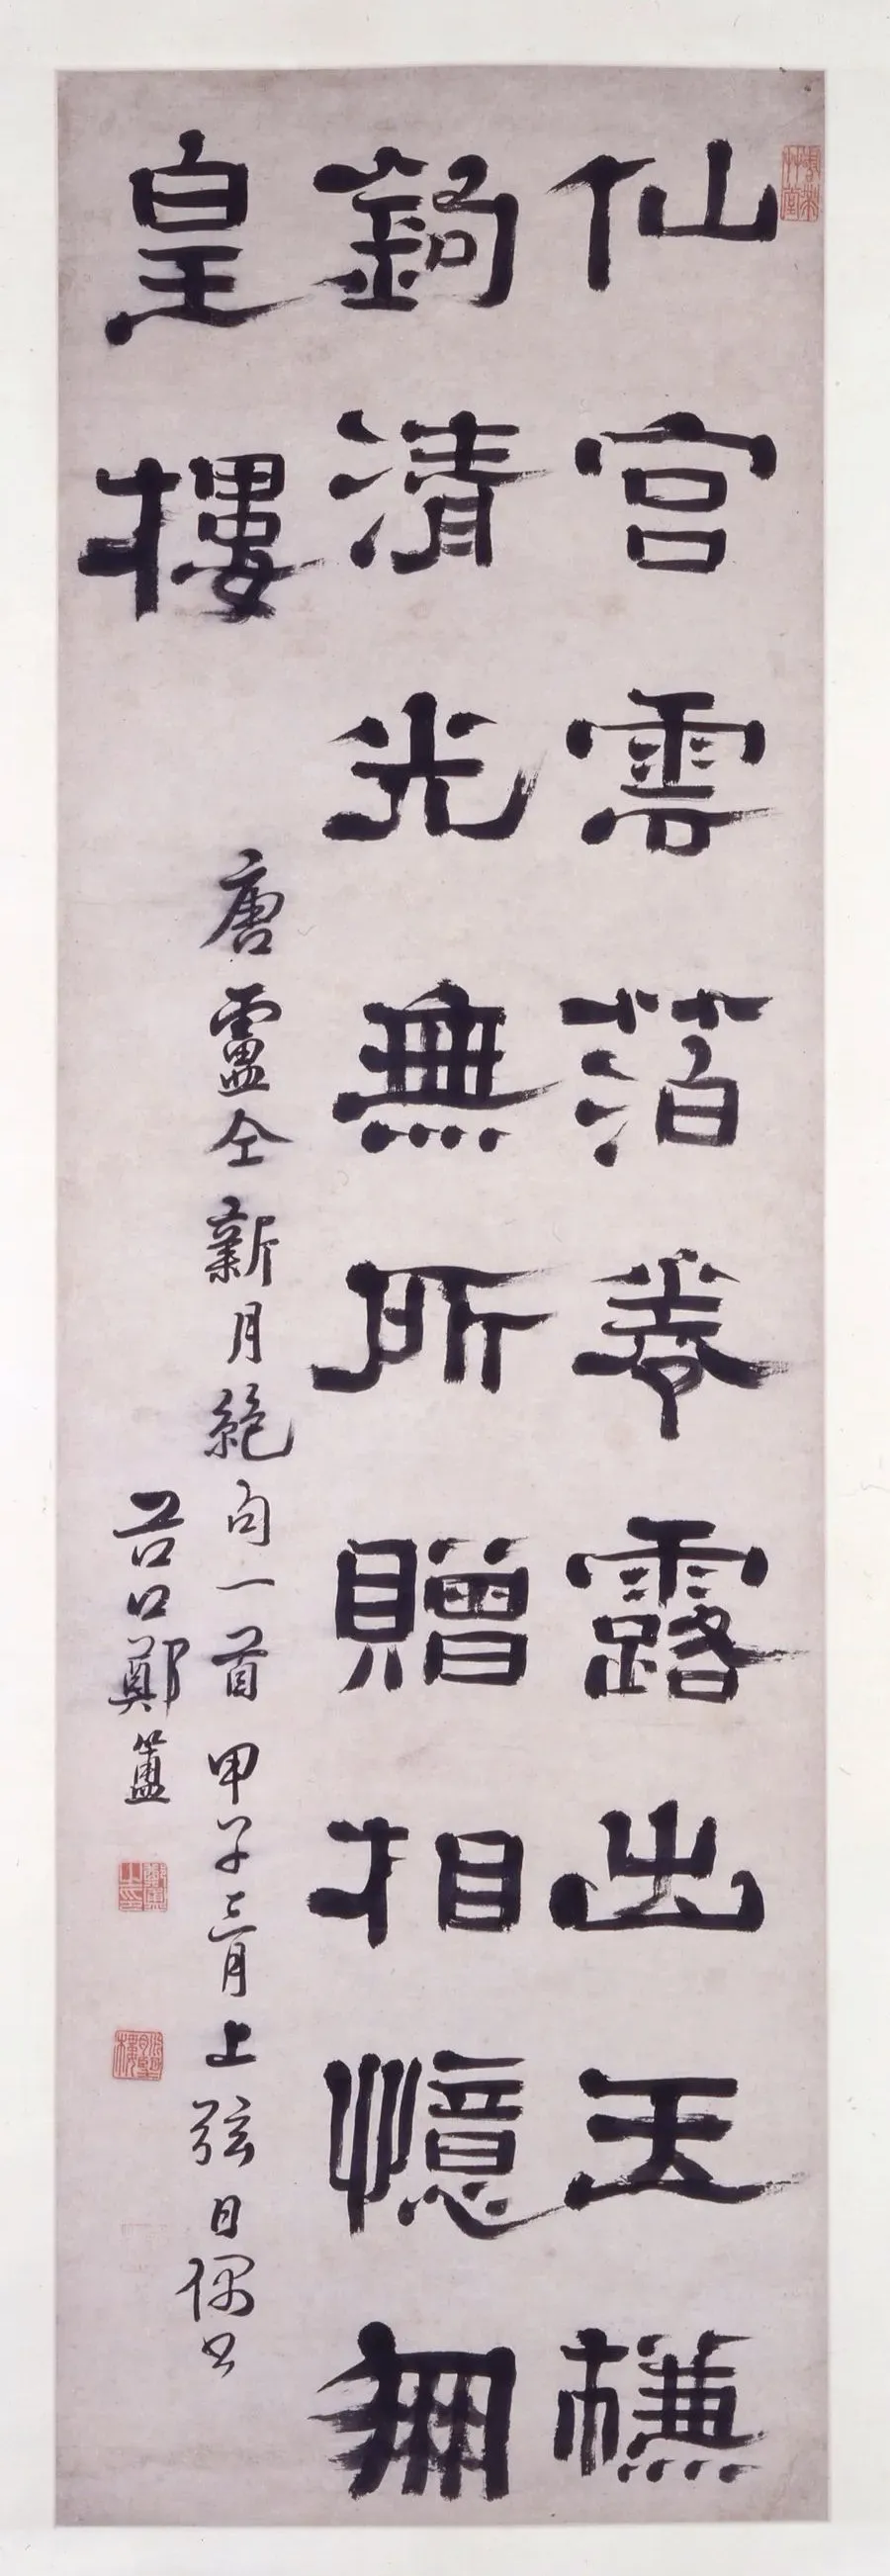 仙宮雲萡卷露出玉槏
鉤清光無所贈相憶朋
皇樓
唐盧仝新月絕句一首甲子三月上弦日偶書
谷口鄭簠
鄭簠之印